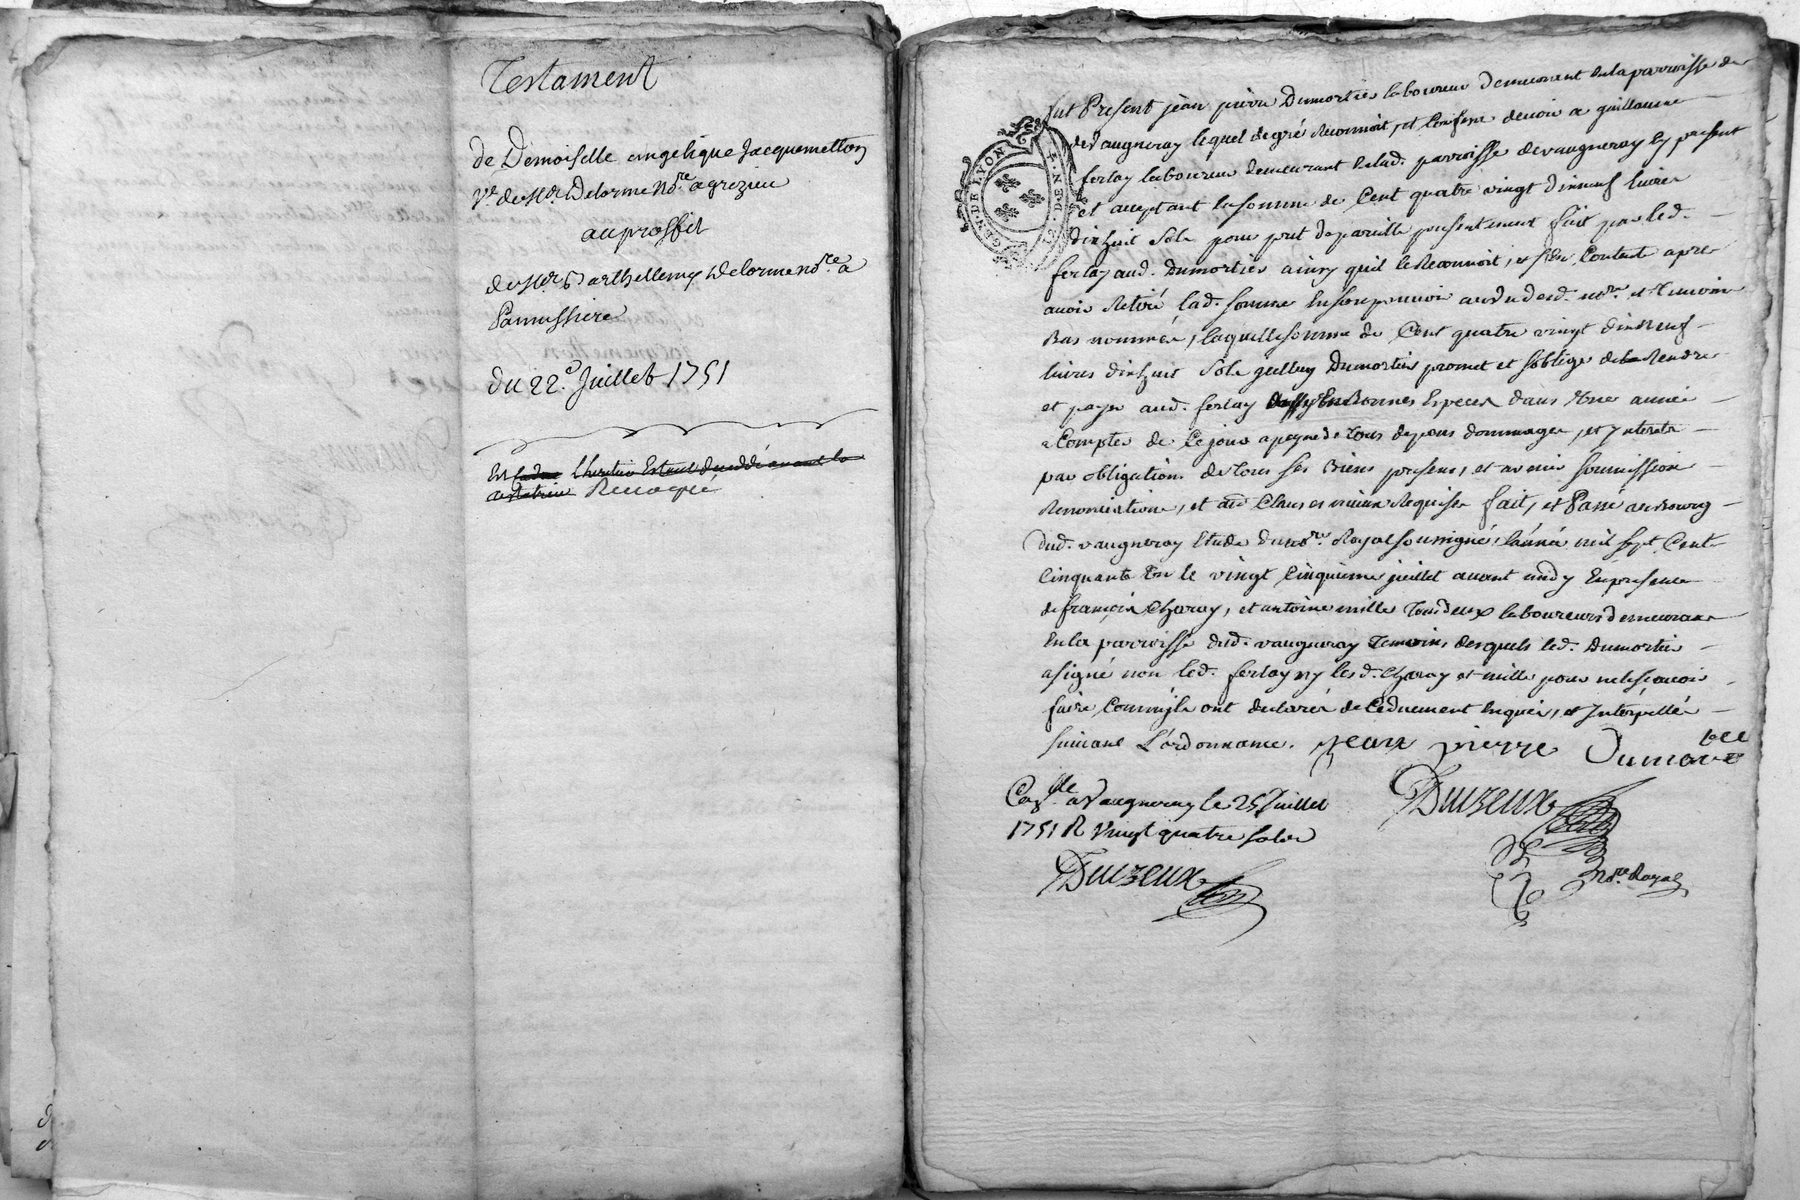 Testament
de Demoiselle angelique Jacquemetton
Ve de Sr Delorme Nore a grezieu
au proffit
de Sr Barthellemy Delorme nore a
Panissiere
du 22e Juillet 1751
Est L'heritier Estant decedé avant la
testatrice Revoqué
GEN. DE LYON
fut Present jean pierre Dumortier laboureur demeurant en la parroisse de
de Vaugneray lequel de gré Reconnoit, et Confesse devoir a guillaume
ferlay laboureur demeurant en lad. parroisse de vaugneray Cy present
et acceptant la somme de Cent quatre vingt dix neuf livres
dixhuit Sols pour pret de pareille presentement fait par led.
ferlay aud. Dumortier ainsy quil le Reconnoit, et s'en Contente apres
avoir Retiré lad. somme En son pouvoir au vu dud. nore. et temoins
Bas nommés, laquelle somme de Cent quatre vingt dix neuf
livres dixhuit Sols yceluy Dumortier promet et soblige de Rendre
et payer aud. ferlay En Bonnes Especes dans Une année
a Compter de Ce jour a peyne de tous depens dommages, et Interets
par obligation de tous ses Biens presens, et avenir soumission
Renonciation, et Clauses Requises fait, et Passé au Bourg
dud. vaugneray Etude du nore. Royal soussigné, l'année mil sept Cent
Cinquante Un le vingt Cinquieme juillet avant midy En presence
de françois Charay, et antoine mille tous deux laboureurs demeurant
En la parroisse dud. vaugneray temoins, desquels led. Dumortier
a signé non led. ferlay ny lesd. Charay et mille pour ne le scavoir
faire Comm'ils ont declarés de Ce duement Enquis, et Interpellés
suivant L'ordonnance. jean pierre Dumortier
Coglé a Vaugneray le 25 Juillet
1751 R Vingt quatre sols
Duizeux
Duizeux
Nore. Royal